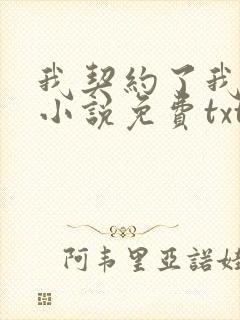 我契約了我
小說免費txt
阿韦里亞諾娃